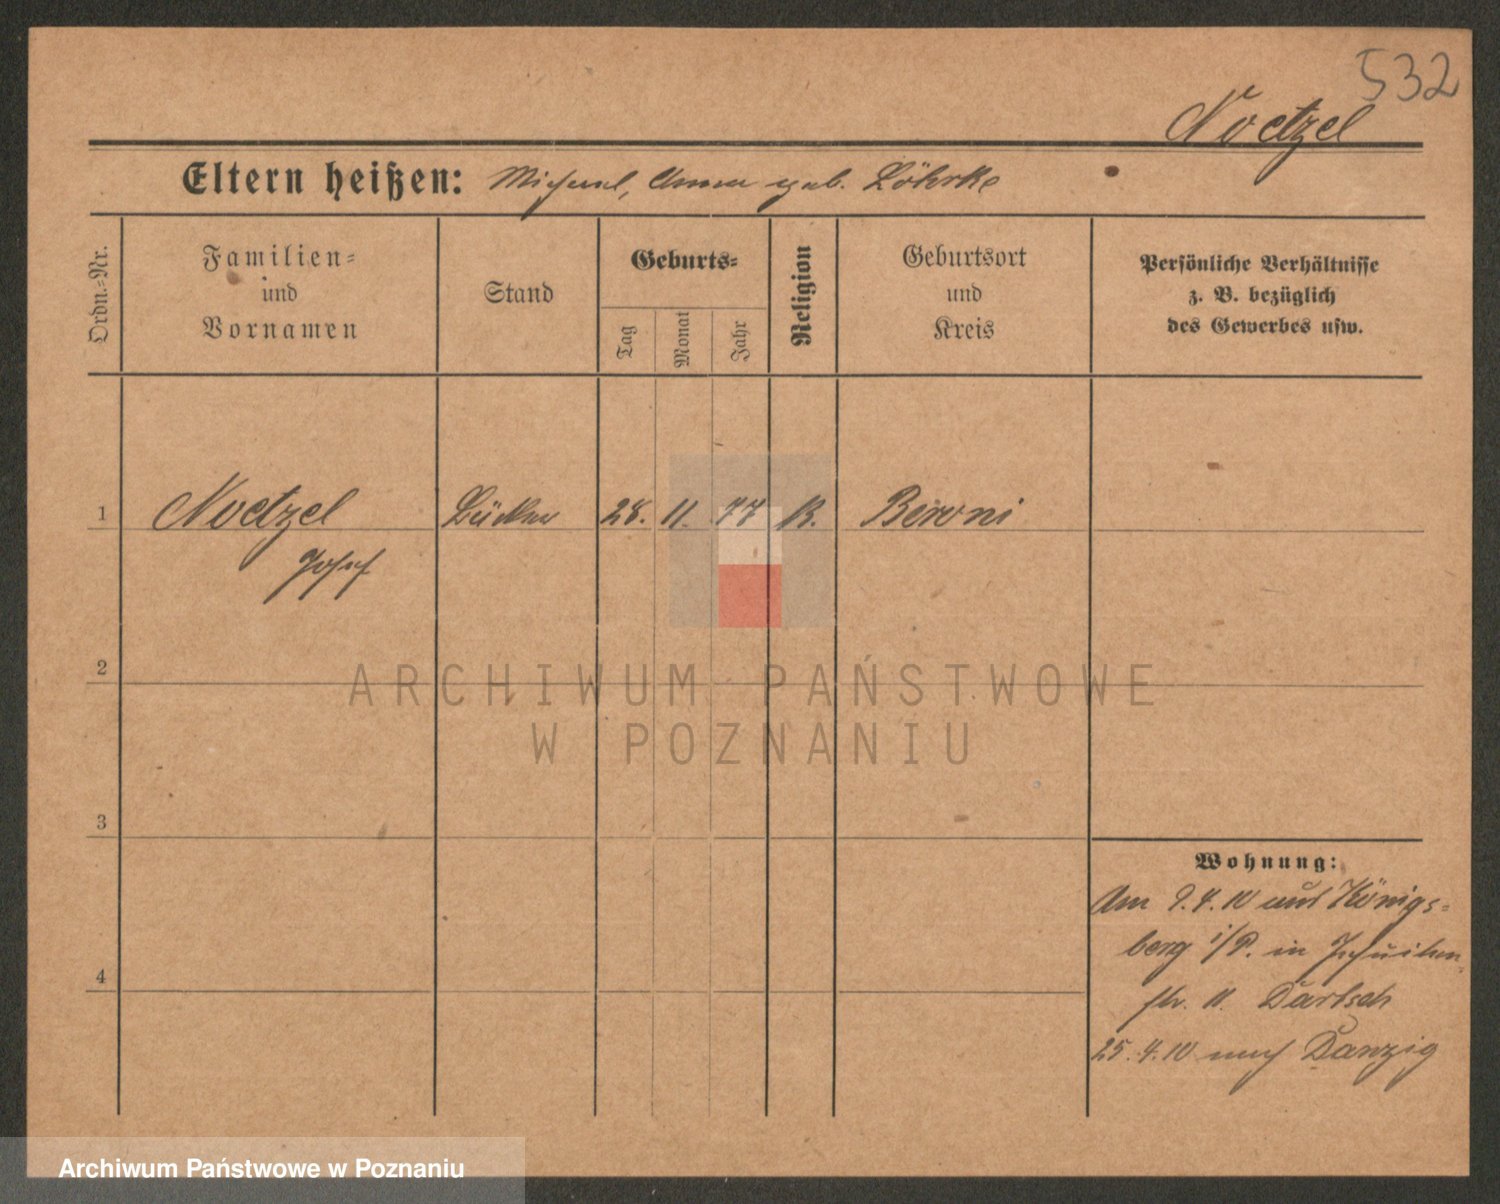 532
Noetzel
Eltern heißen: Michael, Anna geb. Löhrke
Ordn.-Nr.
Familien-
und
Vornamen
Stand
Geburts-
Tag
Monat
Jahr
Religion
Geburtsort
und
Kreis
Persönliche Verhältnisse
z. B. bezüglich
des Gewerbes usw.
1 Noetzel 28. 11. 77 Beroni
Josef
2
3
4
Wohnung:
Am 9.4.10 aus Königs-
berg i/P. in Jesuiten-
str. 11. Bartsch
25.4.10 nach Danzig
ARCHIWUM PAŃSTWOWE
W POZNANIU
Archiwum Państwowe w Poznaniu